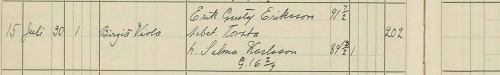 Erik Gusty Eriksson 91 7/2
15 Juli 30 1 Birgit Viola Arbet. Torsta 202
h. Selma Karlsson 89 12/2 1
G. 16 2/9